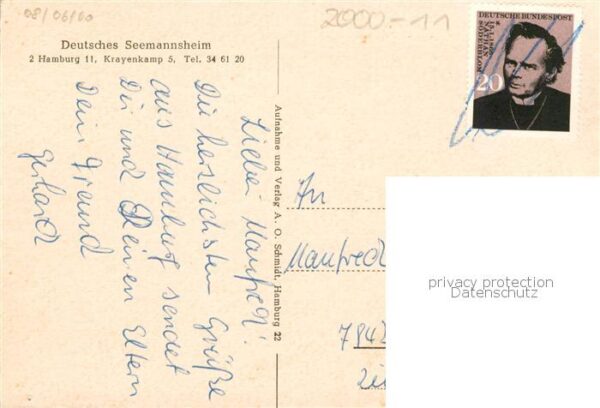 08/06/60
2000-11
Deutsches Seemannsheim
2 Hamburg 11, Krayenkamp 5, Tel. 34 61 20
DEUTSCHE BUNDESPOST
15.1.1866
NATHAN
SÖDERBLOM
20
Lieber Manfred!
Die herzlichsten Grüße
aus Hamburg sendet
Dir und Deinen Eltern
Dein Freund
Gerhard
Aufnahme und Verlag A. O. Schmidt, Hamburg 22
An
Manfred
7842
privacy protection
Datenschutz